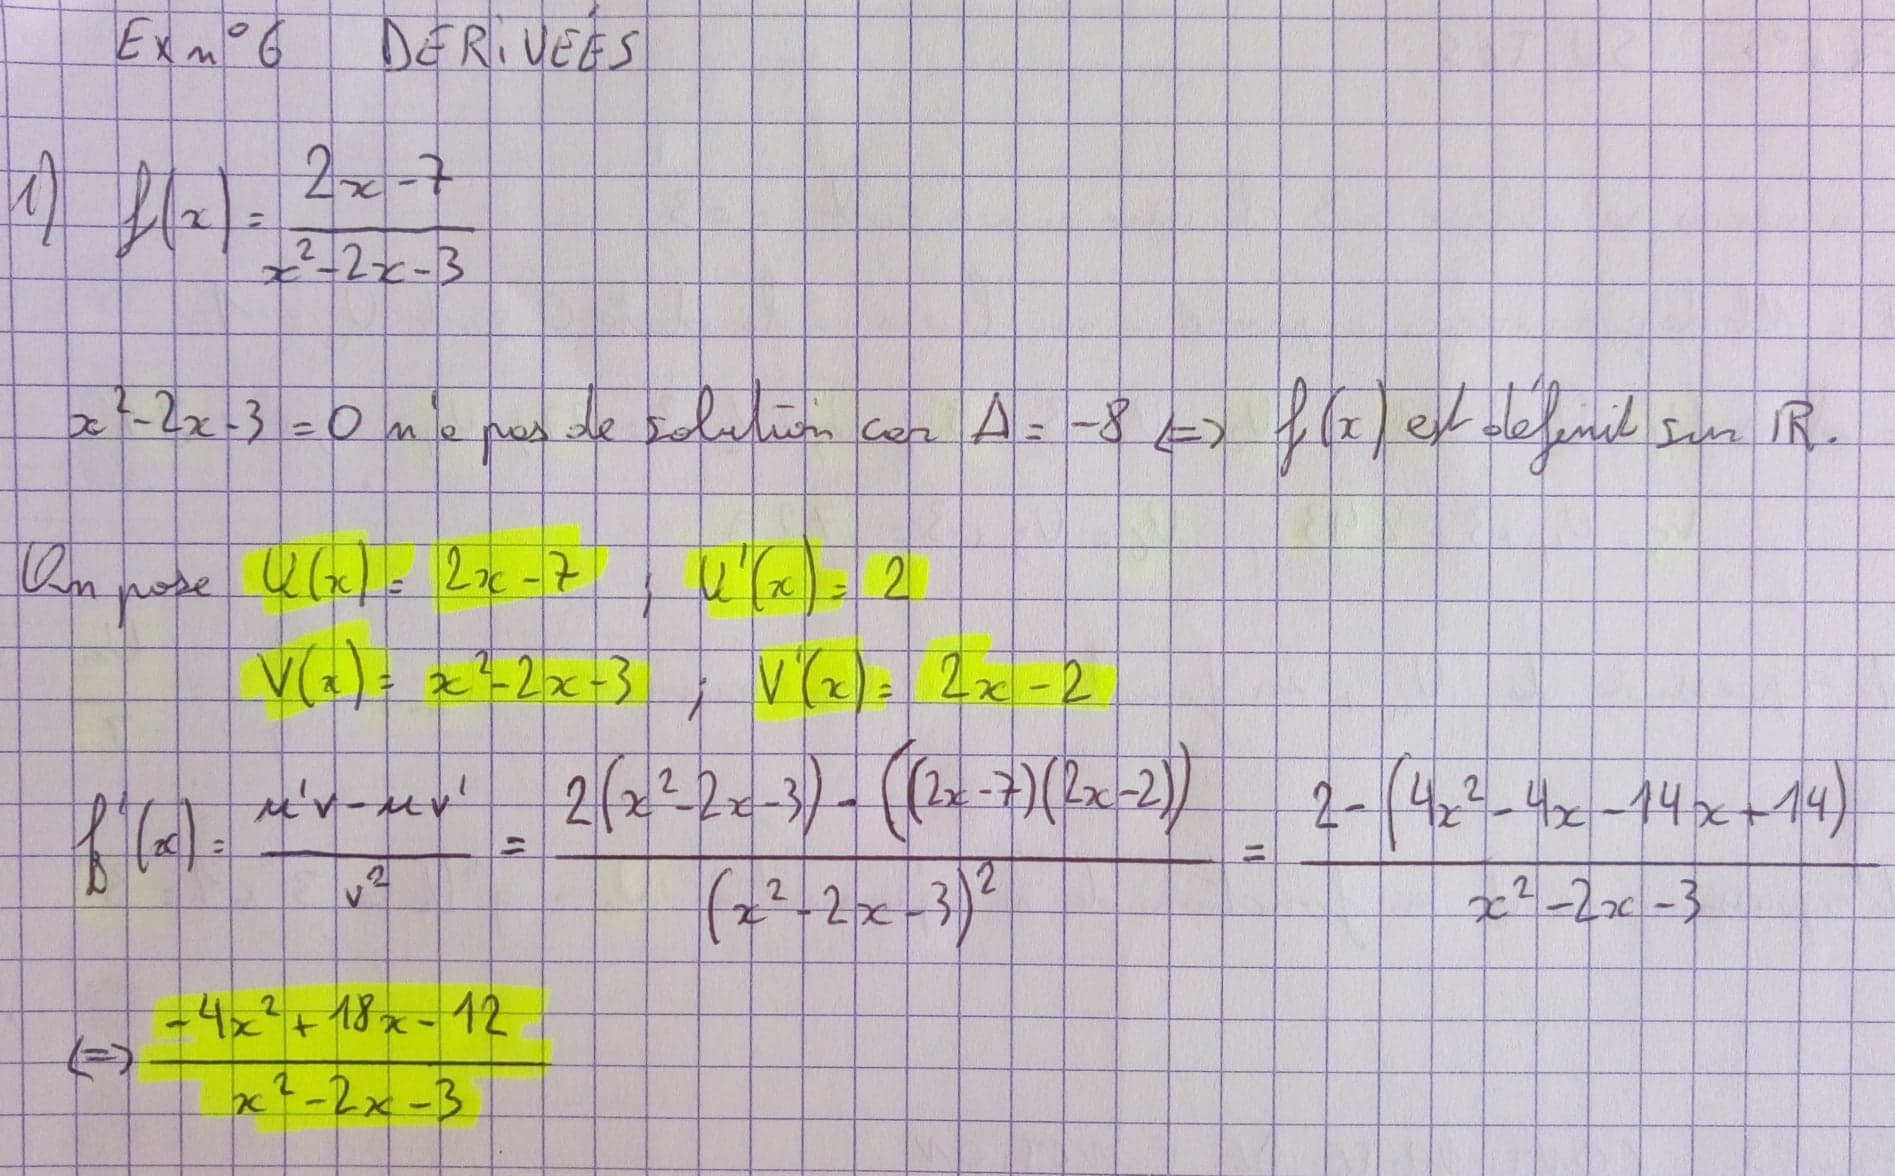 Ex n°6 DERIVÉES
1) f(x) = (2x-7)/(x²-2x-3)
x²-2x-3 = 0 n'a pas de solution car Δ = -8 <=> f(x) est définit sur ℝ.
On pose U(x) = 2x-7 ; U'(x) = 2
V(x) = x²-2x-3 ; V'(x) = 2x-2
f'(x) = (u'v-uv')/v² = (2(x²-2x-3) - ((2x-7)(2x-2)))/(x²-2x-3)² = (2-(4x²-4x-14x+14))/(x²-2x-3)
<=> (-4x²+18x-12)/(x²-2x-3)